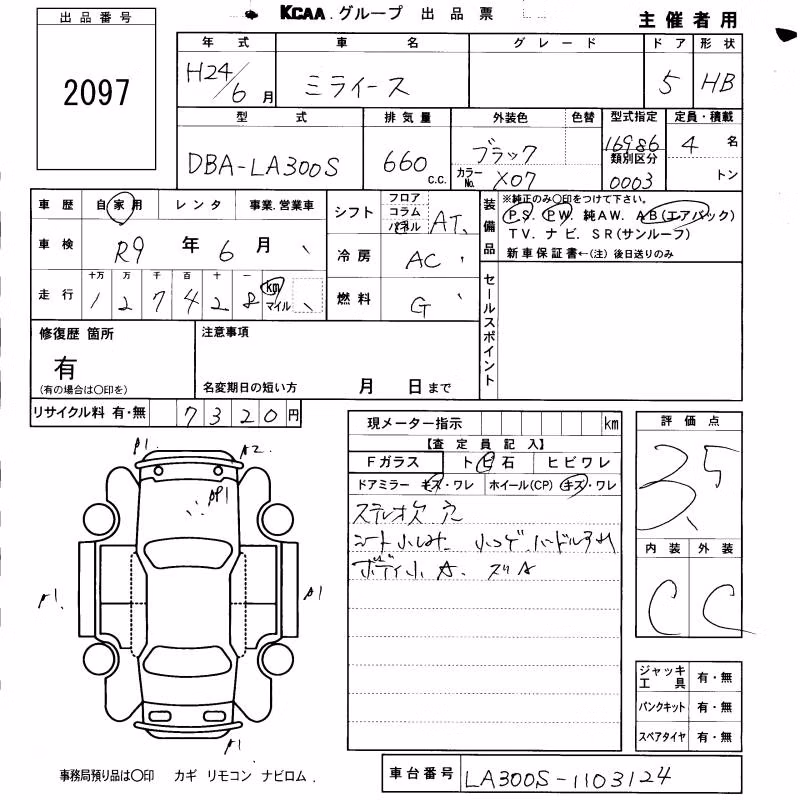 KCAA グループ 出品票
主催者用
出品番号
2097
年式 車名 グレード ドア 形状
H24/6月 ミライース 5 HB
型式 排気量 外装色 色替 型式指定 定員・積載
DBA-LA300S 660 c.c. ブラック 16986 4 名
カラーNo. X07 類別区分 0003 トン
車歴 自家用 レンタ 事業.営業車
車検 R9 年 6 月
走行 十万 万 千 百 十 一
1 2 7 4 2 8 km マイル
シフト フロア コラム パネル AT
冷房 AC
燃料 G
装備品 ※純正のみ○印をつけて下さい。
PS. PW. 純AW. AB(エアバック)
TV. ナビ. SR(サンルーフ)
新車保証書←(注) 後日送りのみ
セールスポイント
修復歴 箇所
有
(有の場合は○印を)
注意事項
名変期日の短い方 月 日まで
リサイクル料 有・無 7320円
現メーター指示 km
【査定員記入】
Fガラス トビ石 ヒビワレ
ドアミラー キズ・ワレ ホイール(CP) キズ・ワレ
ステレオ欠 穴
シート小しみ 小コゲ ハンドルスレ
ボディ小A.
評価点
3.5
内装 外装
C C
A1 A2
P1
A1 A1
A1
ジャッキ工具 有・無
パンクキット 有・無
スペアタイヤ 有・無
事務局預り品は○印 カギ リモコン ナビロム.
車台番号 LA300S-1103124